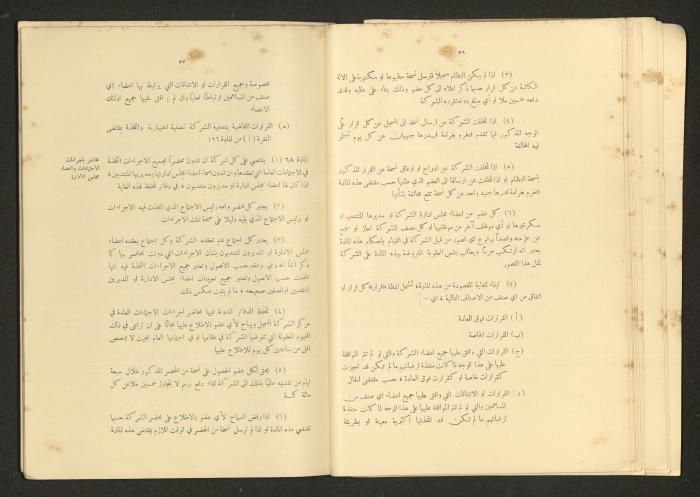 ٥٦
(٣) اذا لم يكن النظام مسجلا فترسل نسخة مطبوعة او مكتوبة على الالة
الكاتبة من كل قرار حسبما ذكر اعلاه الى كل عضو وذلك بناء على طلبه ولدى
دفعه خمسين ملا او اي مبلغ دونه تقرره الشركة
(٤) اذا تخلفت الشركة عن ارسال نسخة الى المسجل عن كل قرار على
الوجه المذكور فيما تقدم فتغرم بغرامة قدرها جنيهان عن كل يوم تستمر
فيه المخالفة
(٥) اذا تخلفت الشركة عن ادراج او ارفاق نسخة عن القرار المذكور
بنسخة النظام او اذا تخلفت عن ارسالها الى العضو الذي طلبها حسب مقتضى هذه المادة
فتغرم بغرامة قدرها جنيه واحد عن كل نسخة تقع مخالفة بشأنها
(٦) كل عضو من اعضاء مجلس ادارة الشركة او مديرها المنتدب او
سكرتيرها او أي موظف آخر من موظفيها او كل مصف للشركة اجاز او سمح
عن علم منه وقصداً بوقوع اي قصور من قبل الشركة في القيام بأحكام هذه المادة
يعتبر انه ارتكب جرماً ويعاقب بنفس العقوبة المفروضة بهذه المادة على الشركة
لمثل هذا القصور
(٧) ايفاء للغاية المقصودة من هذه المادة، تشمل لفظة «قرار» كل قرار او
اتفاق من اي صنف من الاصناف التالية، اي —
(أ) القرارات فوق العادة
(ب) القرارات الخاصة
(ج) القرارات التي وافق عليها جميع اعضاء الشركة والتي لو لم تتم الموافقة
عليها على هذا الوجه لما كانت منفذة لرغباتهم ما لم تكن قد اجيزت
كقرارات خاصة او كقرارات فوق العادة، حسب مقتضى الحال
(د) القرارات او الاتفاقات التي وافق عليها جميع اعضاء اي صنف من
المساهمين والتي لو لم تتم الموافقة عليها على هذا الوجه لما كانت منفذة
لرغباتهم ما لم تكن قد اتخذتها أكثرية معينة او بطريقة
٥٧
مخصوصة وجميع القرارات او الاتفاقات التي يرتبط بها اعضاء اي
صنف من المساهمين ارتباطاً فعلياً وان لم يوافق عليها جميع اولئك
الاعضاء
(ه) القرارات القاضية بتصفية الشركة تصفية اختيارية والمتخذة بمقتضى
الفقرة (أ) من المادة ١٩٦
محاضر باجراءات
الاجتماعات واعضاء
مجلس الادارة
المادة ٦٨ (١) يقتضي على كل شركة ان تدون محضراً بجميع الاجراءات المتخذة
في الاجتماعات العامة التي تعقدها وان تدون اسماء اعضاء مجلس ادارتها ومديريها المنتدبين،
اذا كان لها اعضاء مجلس ادارة او مديرون منتدبون، في دفاتر تحفظ لهذه الغاية
(٢) يعتبر كل محضر وقعه رئيس الاجتماع الذي اتخذت فيه الاجراءات
او رئيس الاجتماع الذي يليه دليلا على صحة تلك الاجراءات
(٣) يعتبر كل اجتماع عام تعقده الشركة وكل اجتماع يعقده اعضاء
مجلس الادارة او المديرون المنتدبون بشأن الاجراءات التي دونت محاضر بها كما
ذكر آنفاً انه دعي وعقد حسب الاصول وتعتبر جميع الاجراءات المتخذة فيه انها
اتخذت حسب الاصول وتعتبر جميع تعيينات اعضاء مجلس الادارة او المديرين
المنتدبين او المصفين صحيحة، ما لم يثبت عكس ذلك
(٤) تحفظ الدفاتر المدونة فيها محاضر اجراءات الاجتماعات العامة في
مركز الشركة المسجل ويباح لأي عضو الاطلاع عليها مجاناً على ان تراعى في ذلك
القيود المعقولة التي تفرضها الشركة في نظامها او في اجتماعها العام بحيث لا يخصص
اقل من ساعتين كل يوم للاطلاع عليها
(٥) يحق لكل عضو الحصول على نسخة من المحضر المذكور خلال سبعة
ايام من تقديمه طلباً بذلك الى الشركة لقاء دفع رسم لا يتجاوز خمسين ملا عن كل
مائة كلمة
(٦) اذا رفض السماح لأي عضو بالاطلاع على محضر الشركة حسبما
تقتضي هذه المادة او اذا لم ترسل نسخة من المحضر في الوقت اللازم بمقتضى هذه المادة